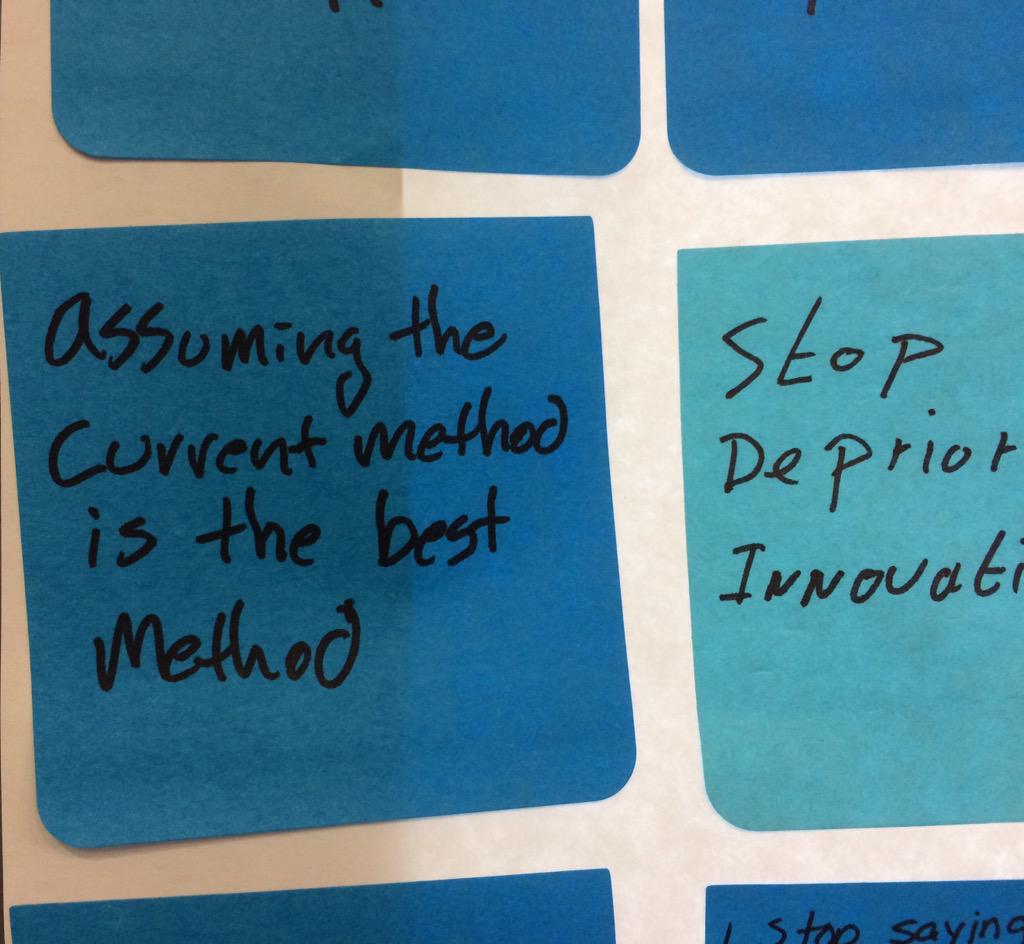 Assuming the
Current method
is the best
Method
Stop
Deprior
Innovati
Stop saying